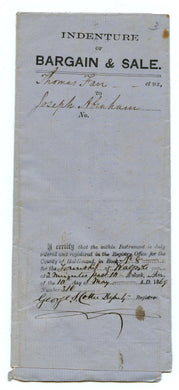 3
INDENTURE
OF
BARGAIN & SALE.
Thomas Farr
et ux,
TO
Joseph Abraham
No.
I certify that the within Instrument is duly
entered and registered in the Registry Office for the
County of Haldimand, in Book
for the Township of Walpole
at 2 minutes past 10 o'clock,
of the 10 day of May A.D. 1869
Number 316
George Cotter Registrar